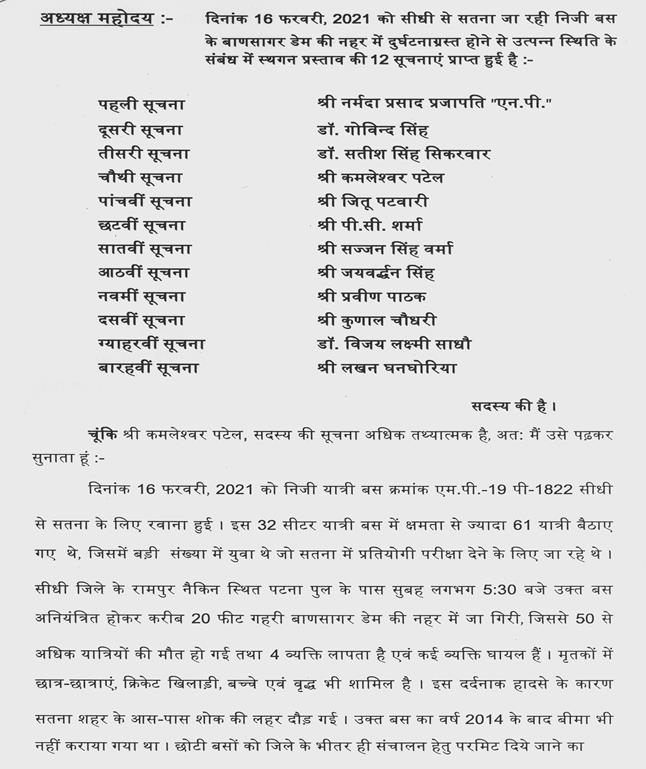 अध्यक्ष महोदय :- दिनांक 16 फरवरी, 2021 को सीधी से सतना जा रही निजी बस
के बाणसागर डेम की नहर में दुर्घटनाग्रस्त होने से उत्पन्न स्थिति के
संबंध में स्थगन प्रस्ताव की 12 सूचनाएं प्राप्त हुई है :-
पहली सूचना श्री नर्मदा प्रसाद प्रजापति "एन.पी."
दूसरी सूचना डॉ. गोविन्द सिंह
तीसरी सूचना डॉ. सतीश सिंह सिकरवार
चौथी सूचना श्री कमलेश्वर पटेल
पांचवीं सूचना श्री जितू पटवारी
छटवीं सूचना श्री पी.सी. शर्मा
सातवीं सूचना श्री सज्जन सिंह वर्मा
आठवीं सूचना श्री जयवर्द्धन सिंह
नवमीं सूचना श्री प्रवीण पाठक
दसवीं सूचना श्री कुणाल चौधरी
ग्याहरवीं सूचना डॉ. विजय लक्ष्मी साधौ
बारहवीं सूचना श्री लखन घनघोरिया
सदस्य की है ।
चूंकि श्री कमलेश्वर पटेल, सदस्य की सूचना अधिक तथ्यात्मक है, अत: मैं उसे पढ़कर
सुनाता हूं :-
दिनांक 16 फरवरी, 2021 को निजी यात्री बस क्रमांक एम.पी.-19 पी-1822 सीधी
से सतना के लिए रवाना हुई । इस 32 सीटर यात्री बस में क्षमता से ज्यादा 61 यात्री बैठाए
गए थे, जिसमें बड़ी संख्या में युवा थे जो सतना में प्रतियोगी परीक्षा देने के लिए जा रहे थे ।
सीधी जिले के रामपुर नैकिन स्थित पटना पुल के पास सुबह लगभग 5:30 बजे उक्त बस
अनियंत्रित होकर करीब 20 फीट गहरी बाणसागर डेम की नहर में जा गिरी, जिससे 50 से
अधिक यात्रियों की मौत हो गई तथा 4 व्यक्ति लापता है एवं कई व्यक्ति घायल हैं । मृतकों में
छात्र-छात्राएं, क्रिकेट खिलाड़ी, बच्चे एवं वृद्ध भी शामिल है । इस दर्दनाक हादसे के कारण
सतना शहर के आस-पास शोक की लहर दौड़ गई । उक्त बस का वर्ष 2014 के बाद बीमा भी
नहीं कराया गया था । छोटी बसों को जिले के भीतर ही संचालन हेतु परमिट दिये जाने का